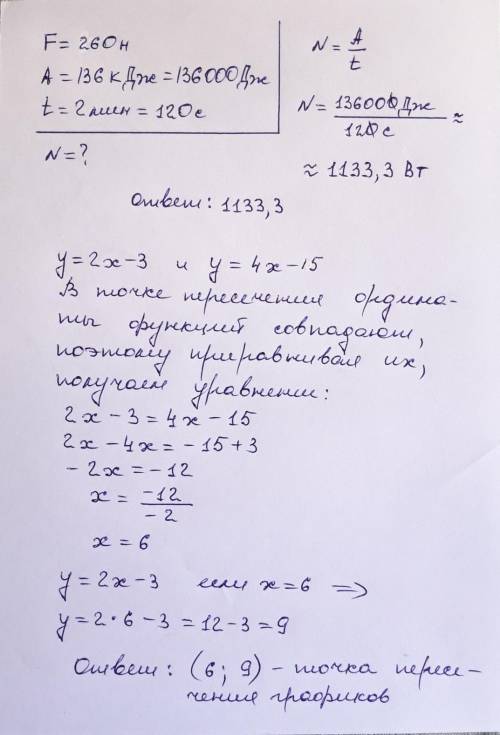 F = 260н
A = 136 кДж = 136000Дж
t = 2 мин = 120с
N = ?
N = A/t
N = 136000Дж/120с ≈
≈ 1133,3 Вт
Ответ: 1133,3
y = 2x - 3 и y = 4x - 15
В точке пересечения ордина-
ты функций совпадают,
поэтому приравнивая их,
получаем уравнение:
2x - 3 = 4x - 15
2x - 4x = -15 + 3
- 2x = -12
x = -12/-2
x = 6
y = 2x - 3 если x = 6 =>
y = 2 · 6 - 3 = 12 - 3 = 9
Ответ: (6; 9) - точка пересе-
чения графиков